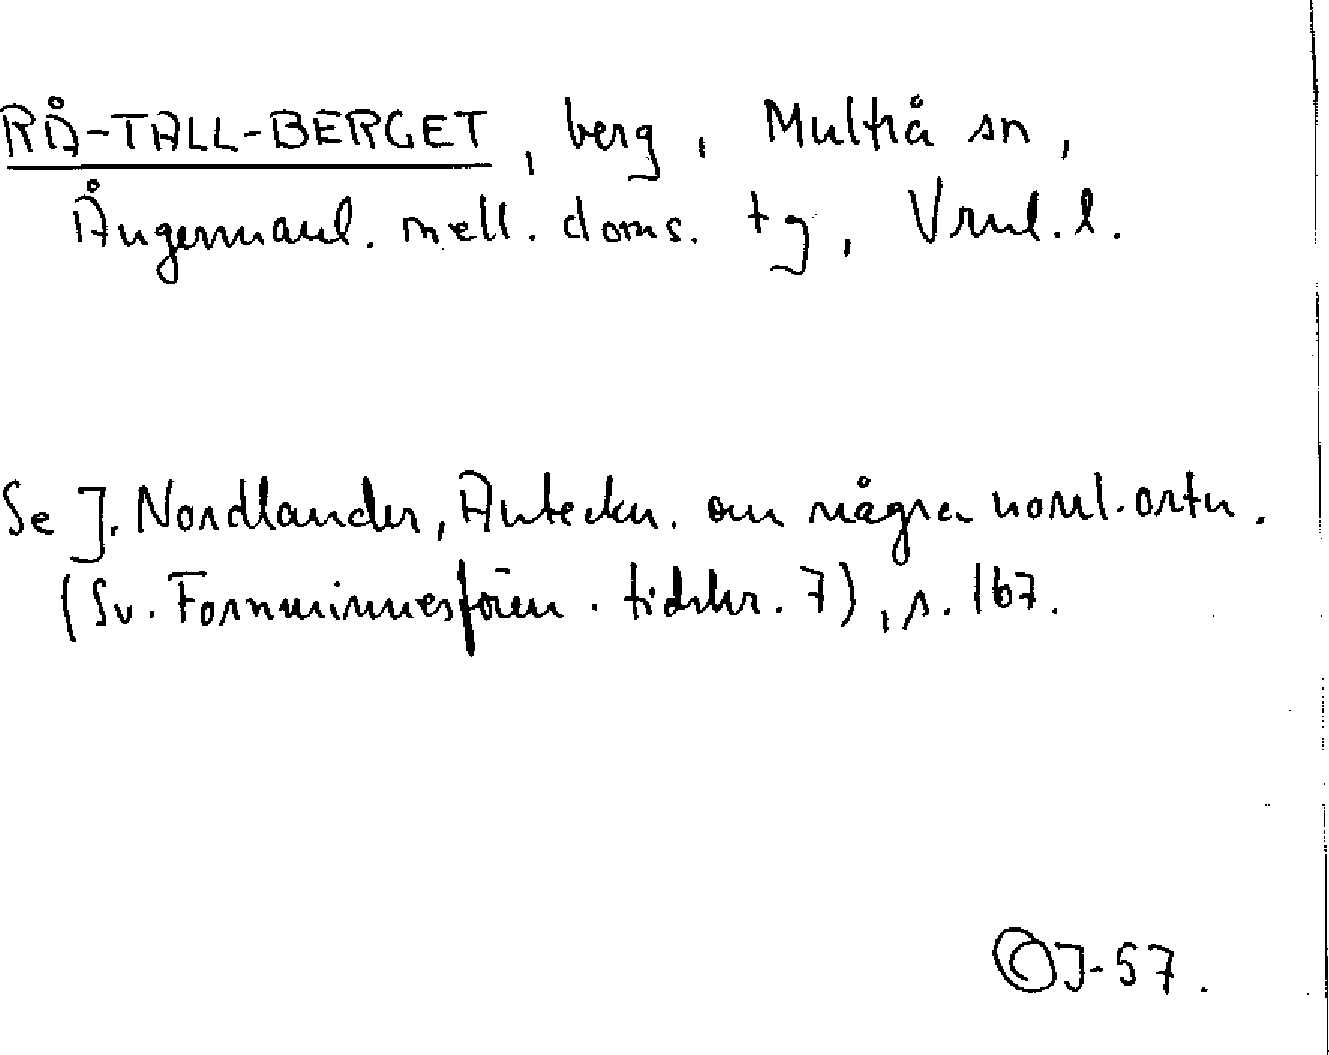 RÅ-TALL-BERGET, berg, Multrå sn,
Ångermanl. mell. doms. tg, Vrnl. l.
Se J. Nordlander, Anteckn. om några norrl. ortn.
(Sv. Fornminnesfören. tidskr. 7), s. 167.
OJ-57.